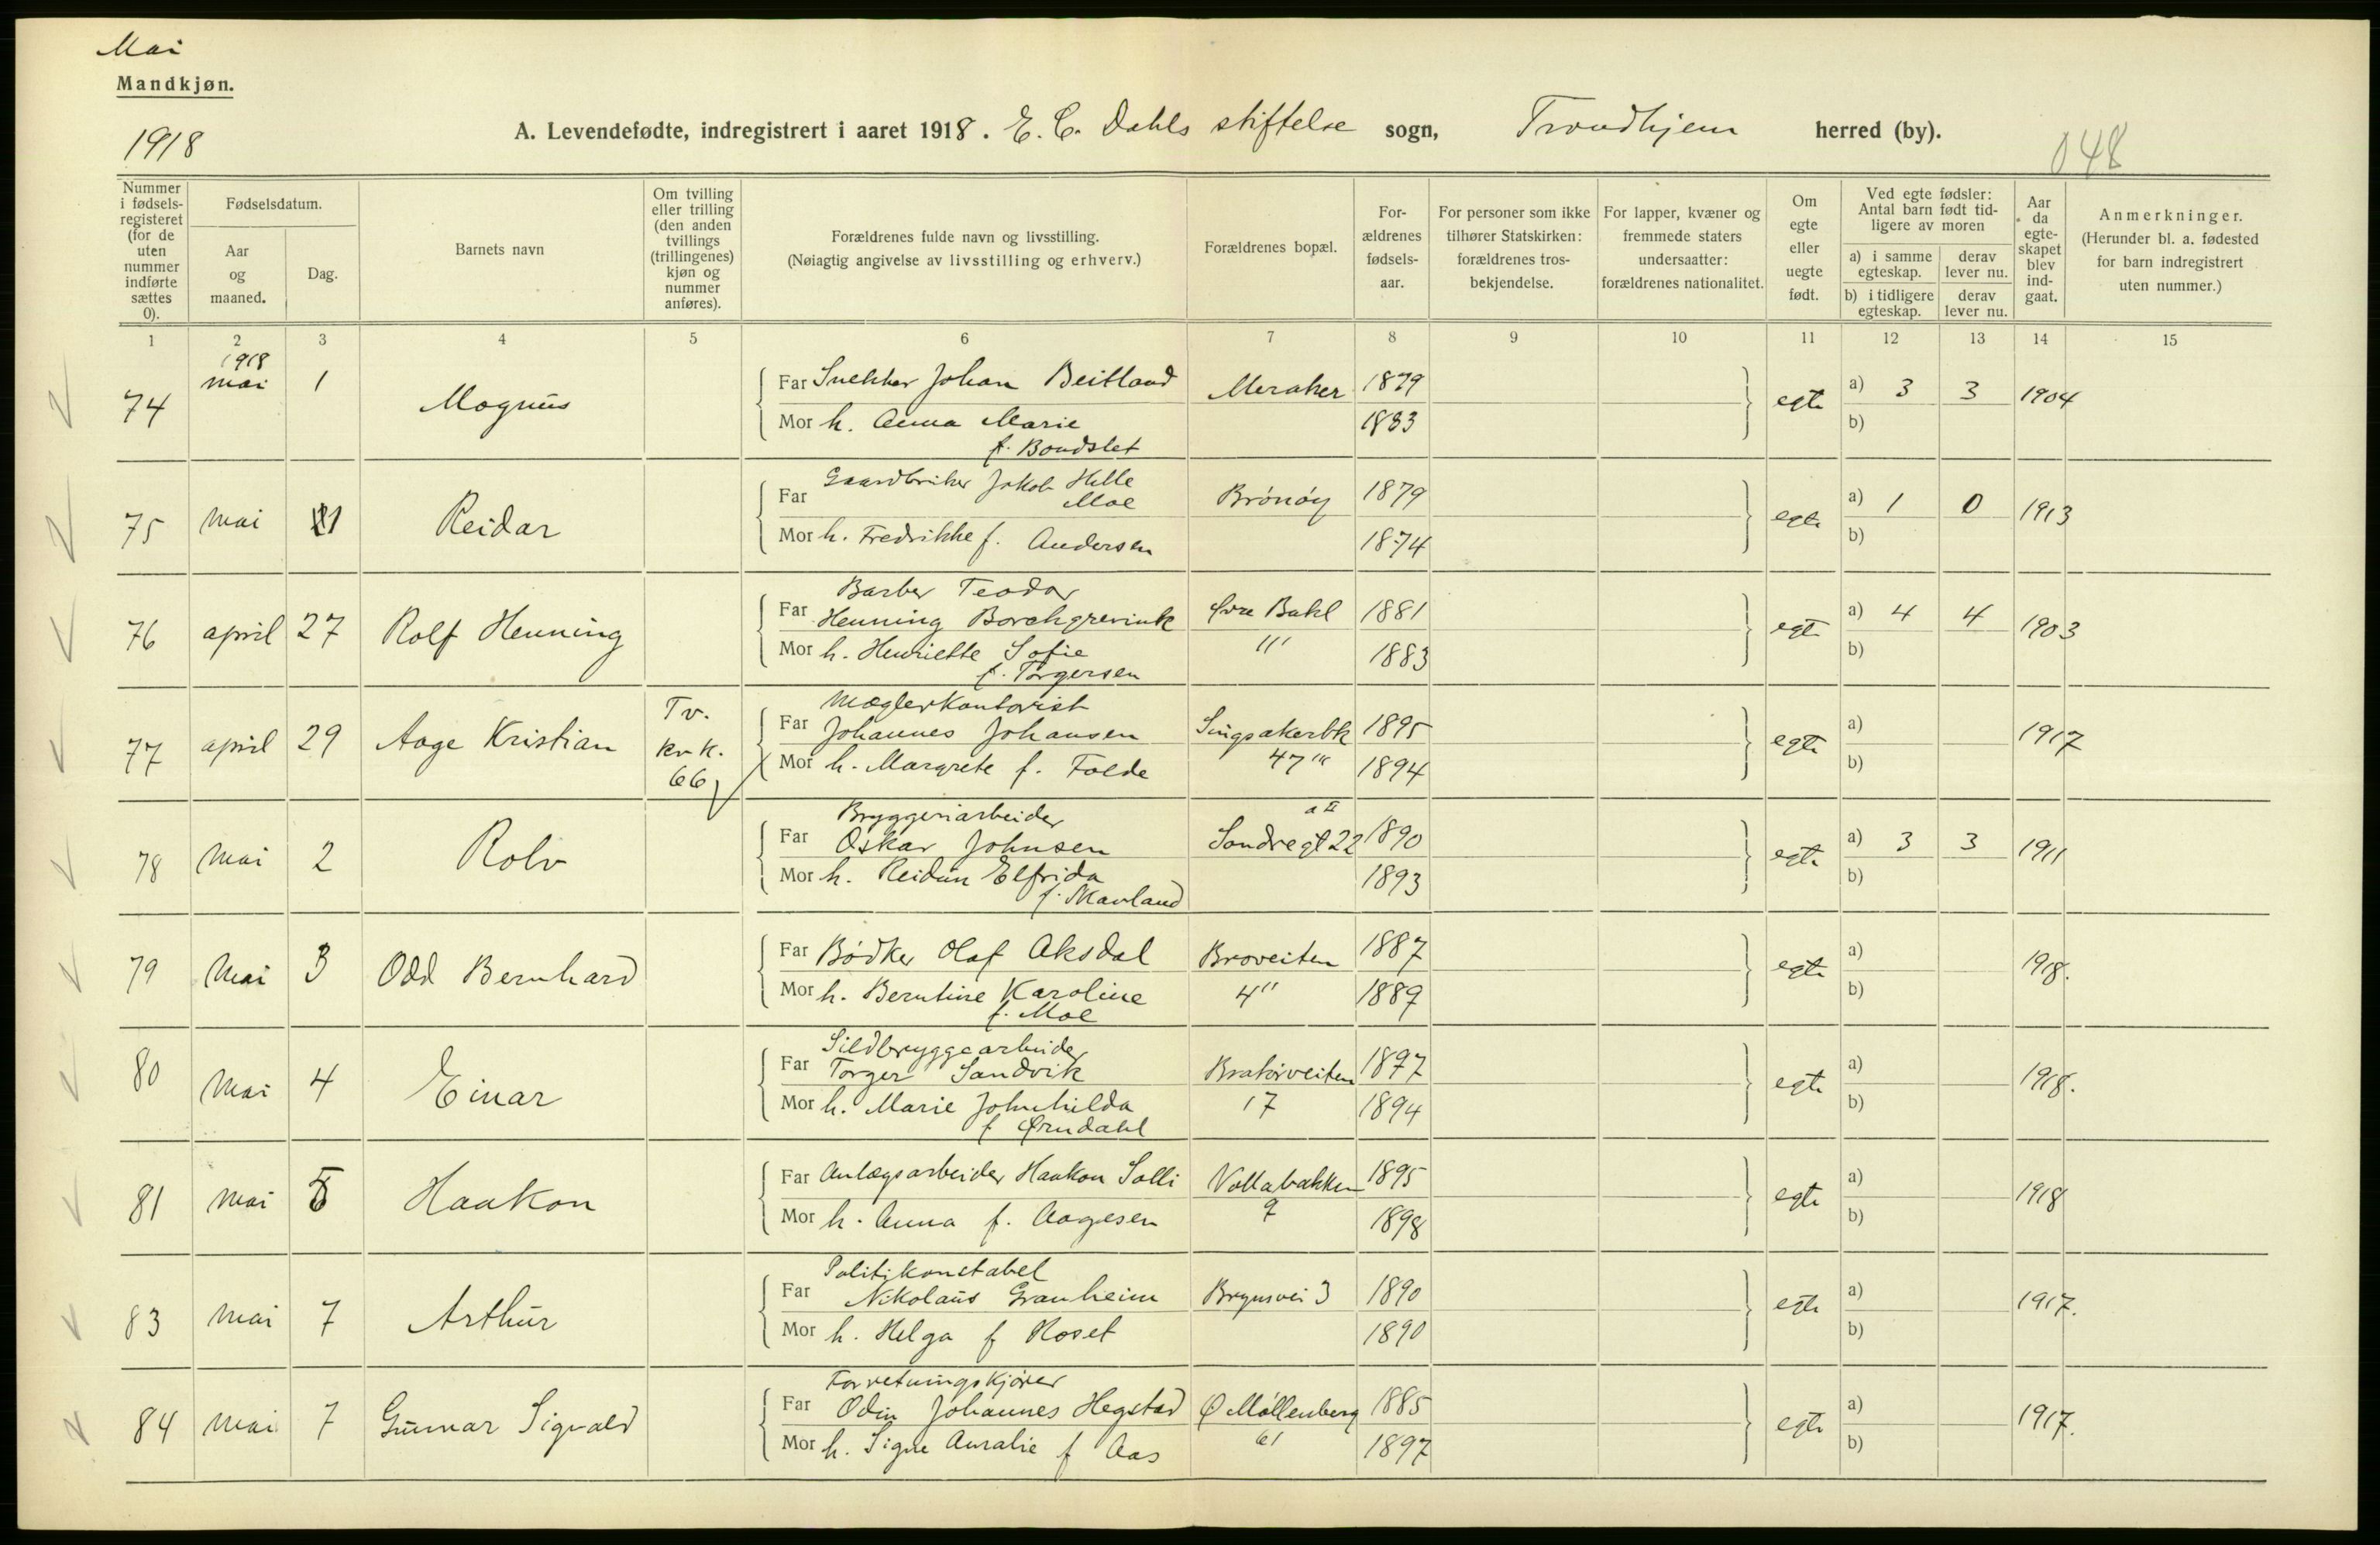 Mai
Mandkjøn.
1918
A. Levendefødte, indregistrert i aaret 1918. E. C. Dahls stiftelse sogn, Trondhjem herred (by).
048
Nummer i fødsels-registeret (for de uten nummer indførte sættes 0).
Fødselsdatum.
Aar og maaned.
Dag.
Barnets navn
Om tvilling eller trilling (den anden tvillings (trillingenes) kjøn og nummer anføres).
Forældrenes fulde navn og livsstilling.
(Nøiagtig angivelse av livsstilling og erhverv.)
Forældrenes bopæl.
For-ældrenes fødsels-aar.
For personer som ikke tilhører Statskirken: forældrenes tros-bekjendelse.
For lapper, kvæner og fremmede staters undersaatter: forældrenes nationalitet.
Om egte eller uegte født.
Ved egte fødsler: Antal barn født tid-ligere av moren
a) i samme egteskap.
derav lever nu.
b) i tidligere egteskap.
derav lever nu.
Aar da egte-skapet blev ind-gaat.
Anmerkninger.
(Herunder bl. a. fødested for barn indregistrert uten nummer.)
1 2 3 4 5 6 7 8 9 10 11 12 13 14 15
74 1918 mai 1 Magnus
Far Snekker Johan Beitland Meraker 1879 egte a) 3 3 1904
Mor h. Anna Marie 1883 b)
f. Bondslet
75 mai 1 Reidar
Gaardbruker Jakob Helle
Far Moe Brönöy 1879 egte a) 1 0 1913
Mor h. Fredrikke f. Andersen 1874 b)
76 april 27 Rolf Henning
Barber Teodor
Far Henning Borchgrevink Øvre Bakl 1881 egte a) 4 4 1903
Mor h. Henriette Sofie 11' 1883 b)
f. Torgersen
77 april 29 Aage Kristian Tv. kv k. 66
Mæglerkontorist
Far Johannes Johansen Singsakerbk 1895 egte a) 1917
Mor h. Margrete f. Folde 47''' 1894 b)
78 mai 2 Rolv
Bryggeriarbeider a II
Far Oskar Johnsen Sondregt 22 1890 egte a) 3 3 1911
Mor h. Reidun Elfrida 1893 b)
79 Mai 3 Odd Bernhard
Far Bödker Olaf Aksdal Broveiten 1887 egte a) 1918.
Mor h. Berntine Karoline 4" 1889 b)
f. Moe
80 Mai 4 Einar
Sildbryggearbeider
Far Torger Sandvik Bratörveiten 1897 egte a) 1918.
Mor h. Marie Johnhilda 17 1894 b)
f Ørndahl
81 mai 5 Haakon
Far Anlægsarbeider Haakon Solli Vollabakken 1895 egte a) 1918
Mor h. Anna f. Aagesen 9 1898 b)
83 mai 7 Arthur
Politikonstabel
Far Nikolaus Granheim Brynsvei 3 1890 egte a) 1917.
Mor h. Helga f Roset 1890 b)
84 mai 7 Gunnar Sigvald
Forretningskjörer
Far Odin Johannes Hegstad Ø Möllenberg 1885 egte a) 1917.
Mor h. Signe Auralie f Aas 61 1897 b)